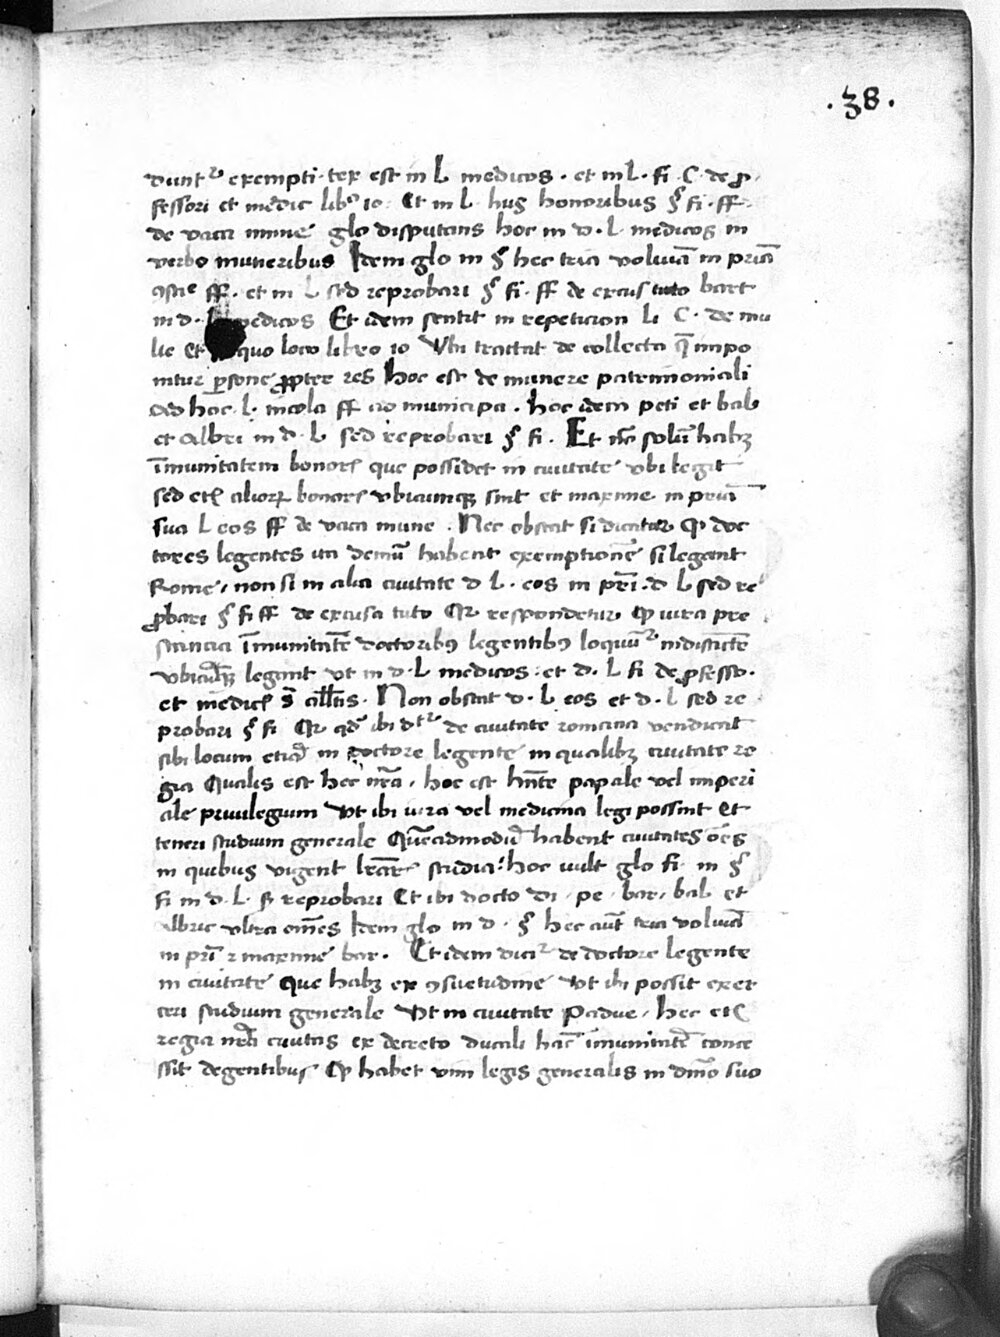 .38.
duntr exempti. tex est in L medicos. et in L. fi. C. de pro
fessori et medic lib° 10. Et in L. huius honoribus § fi. ff.
de vaca mune glo disputans hoc in d. L. medicos in
verbo muneribus Idem glo in § hec tria in
ff. et in L sed reprobari § fi. ff de excus tuto bart
in d. L medicos Et idem sentit in repeticion li C. de mu
lie Et quo loco libro 10 Vbi tractat de collecta que impo
nitur persone propter res Hoc est de munere patrimoniali
hoc. L. incola ff ad municipa. hoc idem peti et bal
et Albri in d. L sed reprobari § fi. Et nō solū habꝫ
īmunitatem bonorꝫ que possidet in ciuitate vbi legit
sed etꝫ aliorꝫ bonorꝫ vbicumqꝫ sint et maxime in
sua L eos ff de vaca mune. Nec obstat si dicatur qꝫ doc
tores legentes ita demū habent exemptionē si legant
Rome, non si in alia ciuitate d L. eos in d L sed re
probari § fi ff de excusa tuto qꝫ respondetur qꝫ iura pre
stancia īmunitatē doctoribꝫ legentibꝫ loquūr indistincte
vbicūqꝫ legant vt in d. L medicos. et d. L fi de professo.
et medicꝫ Non obstat d. L eos et d. L sed re
probari § fi qꝫ ibi de ciuitate romana vendicat
sibi locum etiā in doctore legente in qualibꝫ ciuitate re
gia Qualis est hec nrā, hoc est hn̄te papale vel imperi
ale priuilegium Vt ibi iura vel medicina legi possint Et
teneri studium generale Quēadmodū habent ciuitates oēs
in quibus vigent studia. hoc vult glo fi. in §
fi in d. L. reprobari Et ibi docto di. pe. bar. bal et
albric vltra omēs Idem glo in d. § hec aūt tria
in maxime bar. Et idem dicir de doctore legente
in ciuitate Que habꝫ ex ꝯsuetudine Vt ibi possit exer
ceri studium generale Vt in ciuitate Padue, hec etꝫ
regia nrā ciuitas ex decreto ducali hāc īmunitatē conce
ssit degentibus Qꝫ habet vim legis generalis in dm̄o suo